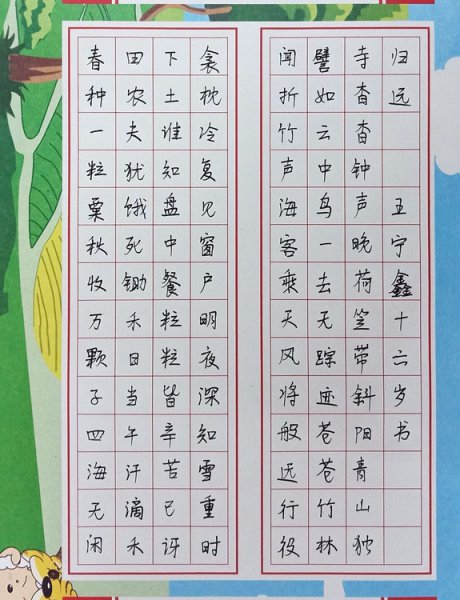 春种一粒粟秋收万颗子四海无闲
田农夫犹饿死锄禾日当午汗滴禾
下土谁知盘中餐粒粒皆辛苦已讶
衾枕冷复见窗户明夜深知雪重时
闻折竹声海客乘天风将般远行役
譬如云中鸟一去无踪迹苍苍竹林
寺杳杳钟声晚荷笠带斜阳青山独
归远 王宁鑫十六岁书